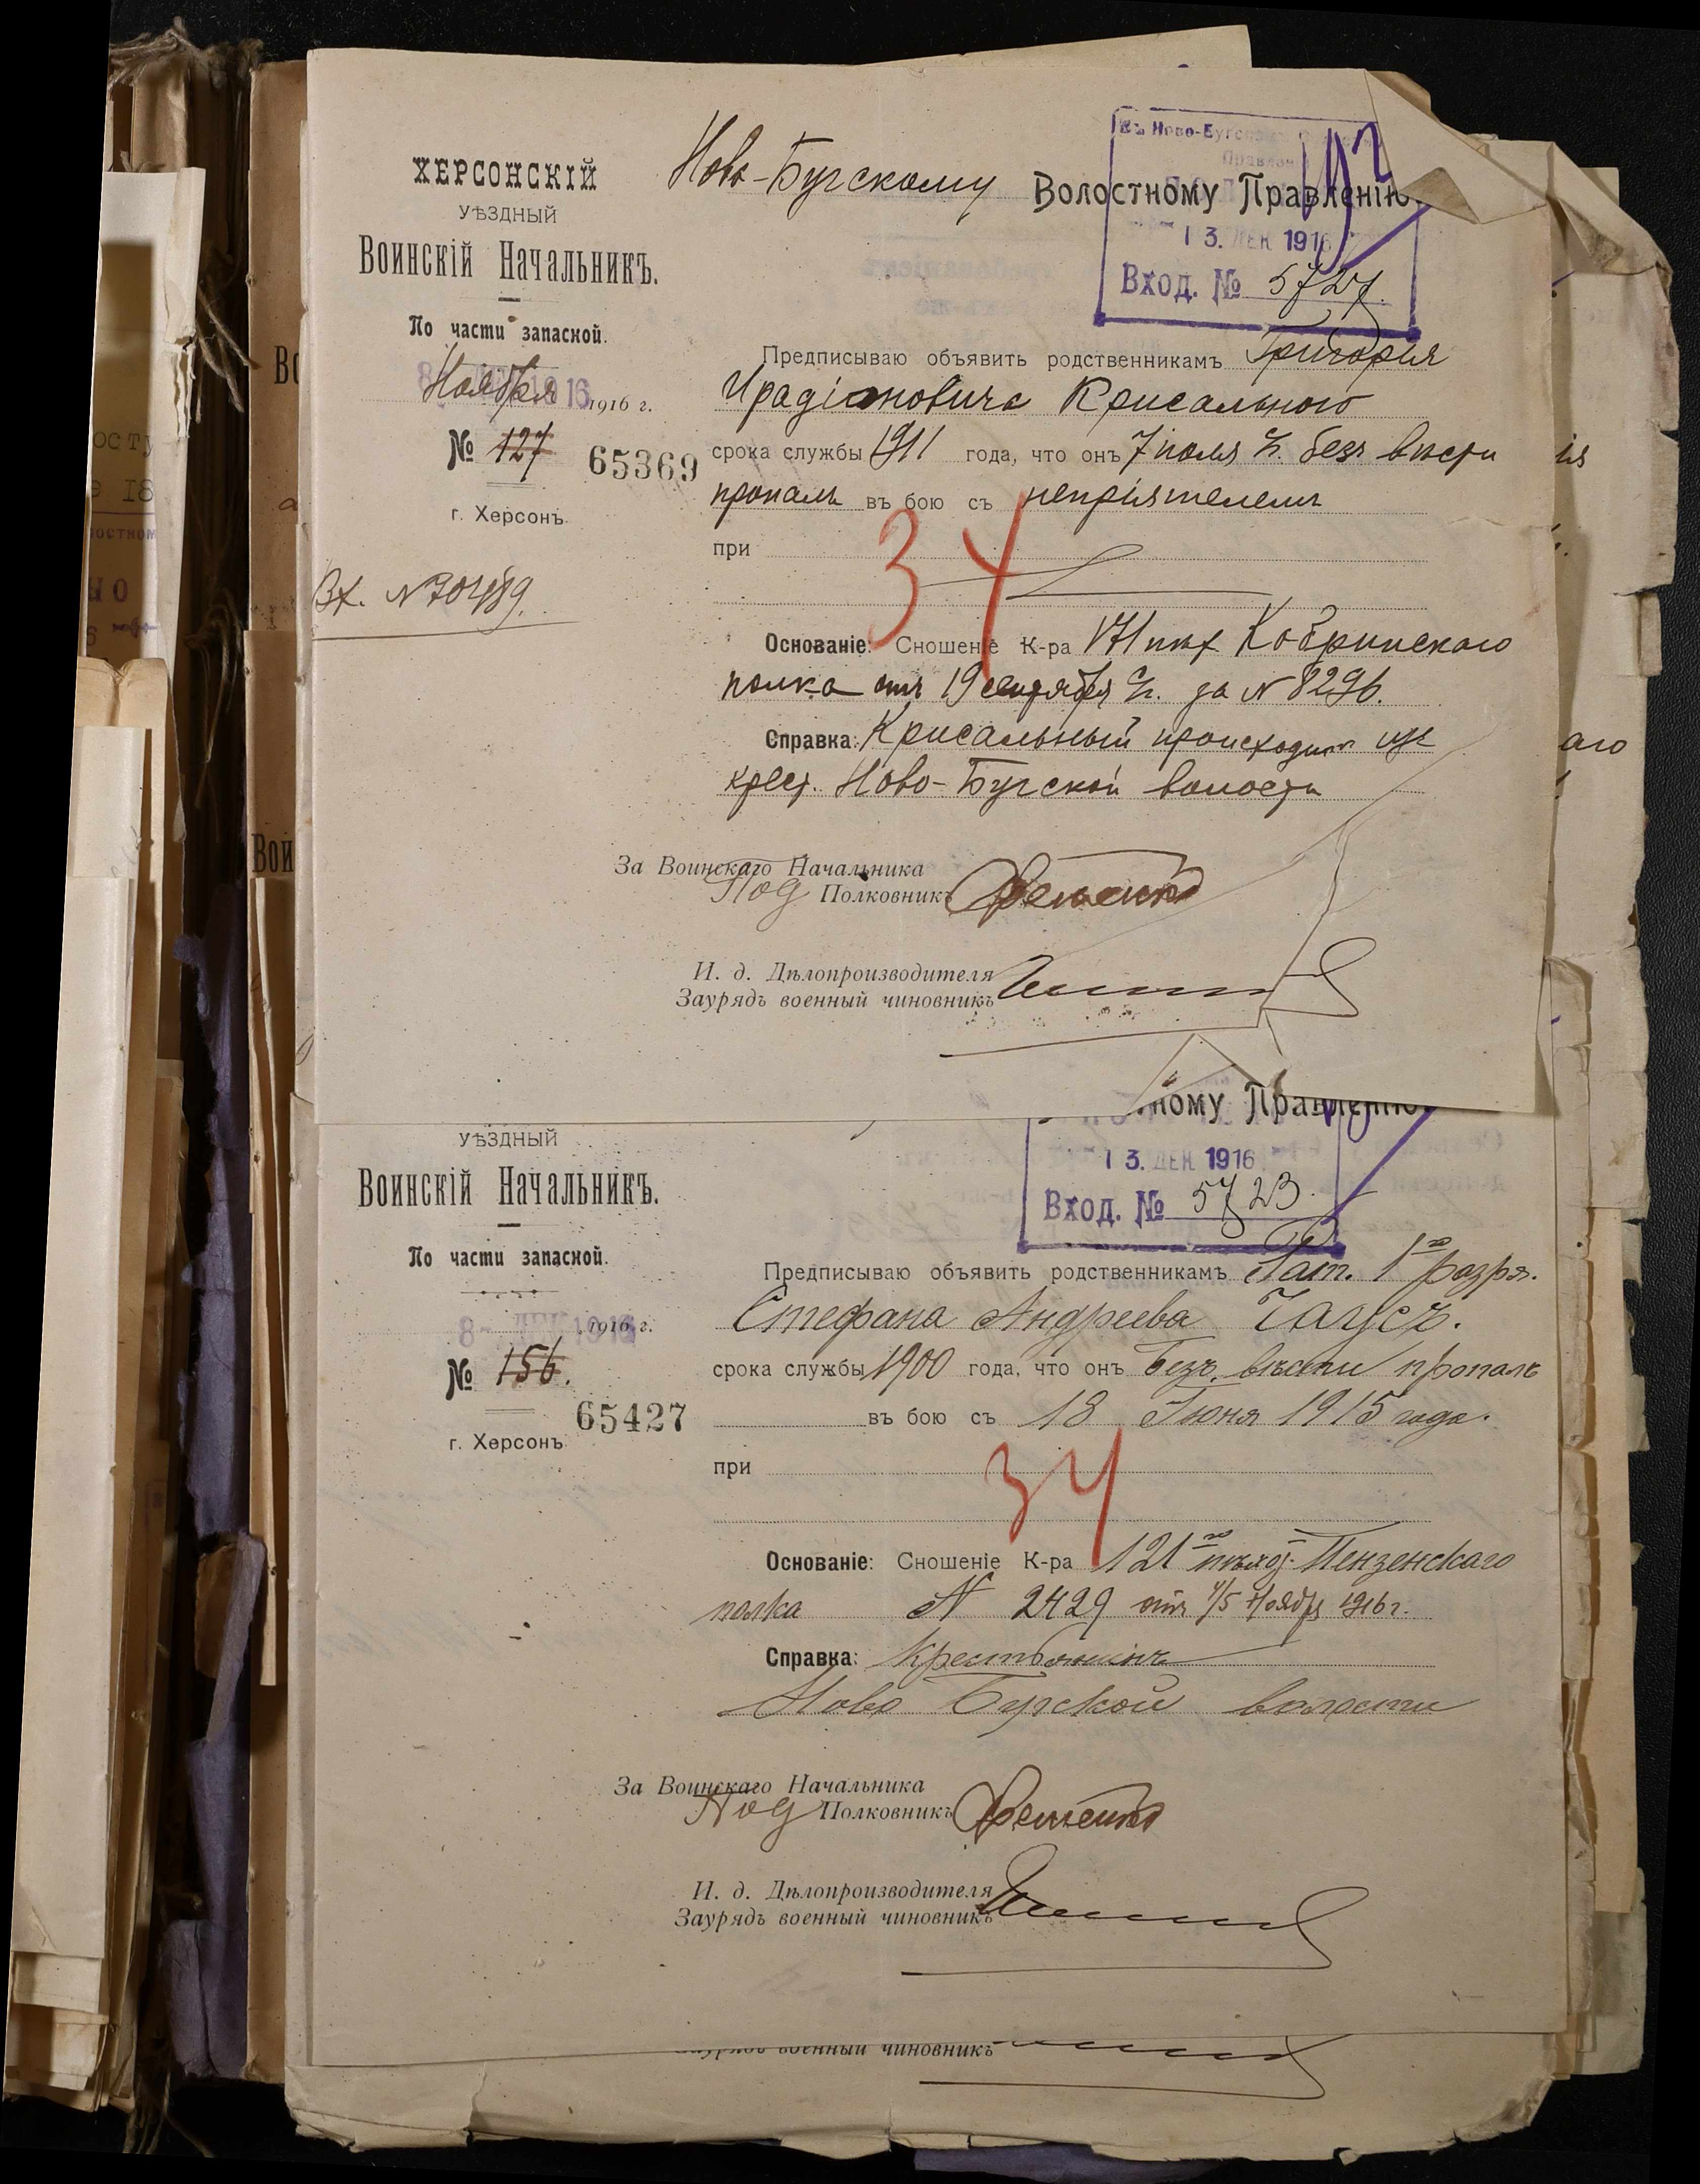 ХЕРСОНСКІЙ
УѢЗДНЫЙ
ВОИНСКІЙ НАЧАЛЬНИКЪ.
По части запасной.
Ноября 1916 г.
№ 127 65369
г. Херсонъ
Вх. №
Ново-Бугскому Волостному Правленію
13. ДЕК 1916
Вход. № 5727.
Предписываю объявить родственникамъ Григорія
Ирадіоновича Крисального
срока службы 1911 года, что онъ 7 іюля с.г. безъ вѣсти
пропалъ въ бою съ непріятелемъ
при
34
Основаніе: Сношеніе К-ра 171 пѣх Кобринскаго
полка отъ 19 сентября с.г. за № 8296.
Справка: Крисальный происходитъ изъ
крест. Ново-Бугской волости
За Воинскаго Начальника
Под Полковникъ
И. д. Дѣлопроизводителя
Заурядъ военный чиновникъ
ному Правленію
УѢЗДНЫЙ
ВОИНСКІЙ НАЧАЛЬНИКЪ.
По части запасной.
8- ДЕК 1916 1916 г.
№ 156.
65427
г. Херсонъ
13. ДЕК 1916
Вход. № 5723.
Предписываю объявить родственникамъ Рат. 1го разря.
Стефана Андреева Гаусъ.
срока службы 1900 года, что онъ Безъ вѣсти пропалъ
въ бою съ 18 Іюня 1915 года.
при
34
Основаніе: Сношеніе К-ра 121го пѣхот. Пензенскаго
полка № 2429 отъ 4/5 Ноября 1916 г.
Справка: крестьянинъ
Ново Бугской волости
За Воинскаго Начальника
Под Полковникъ
И. д. Дѣлопроизводителя
Заурядъ военный чиновникъ
Заурядъ военный чиновникъ